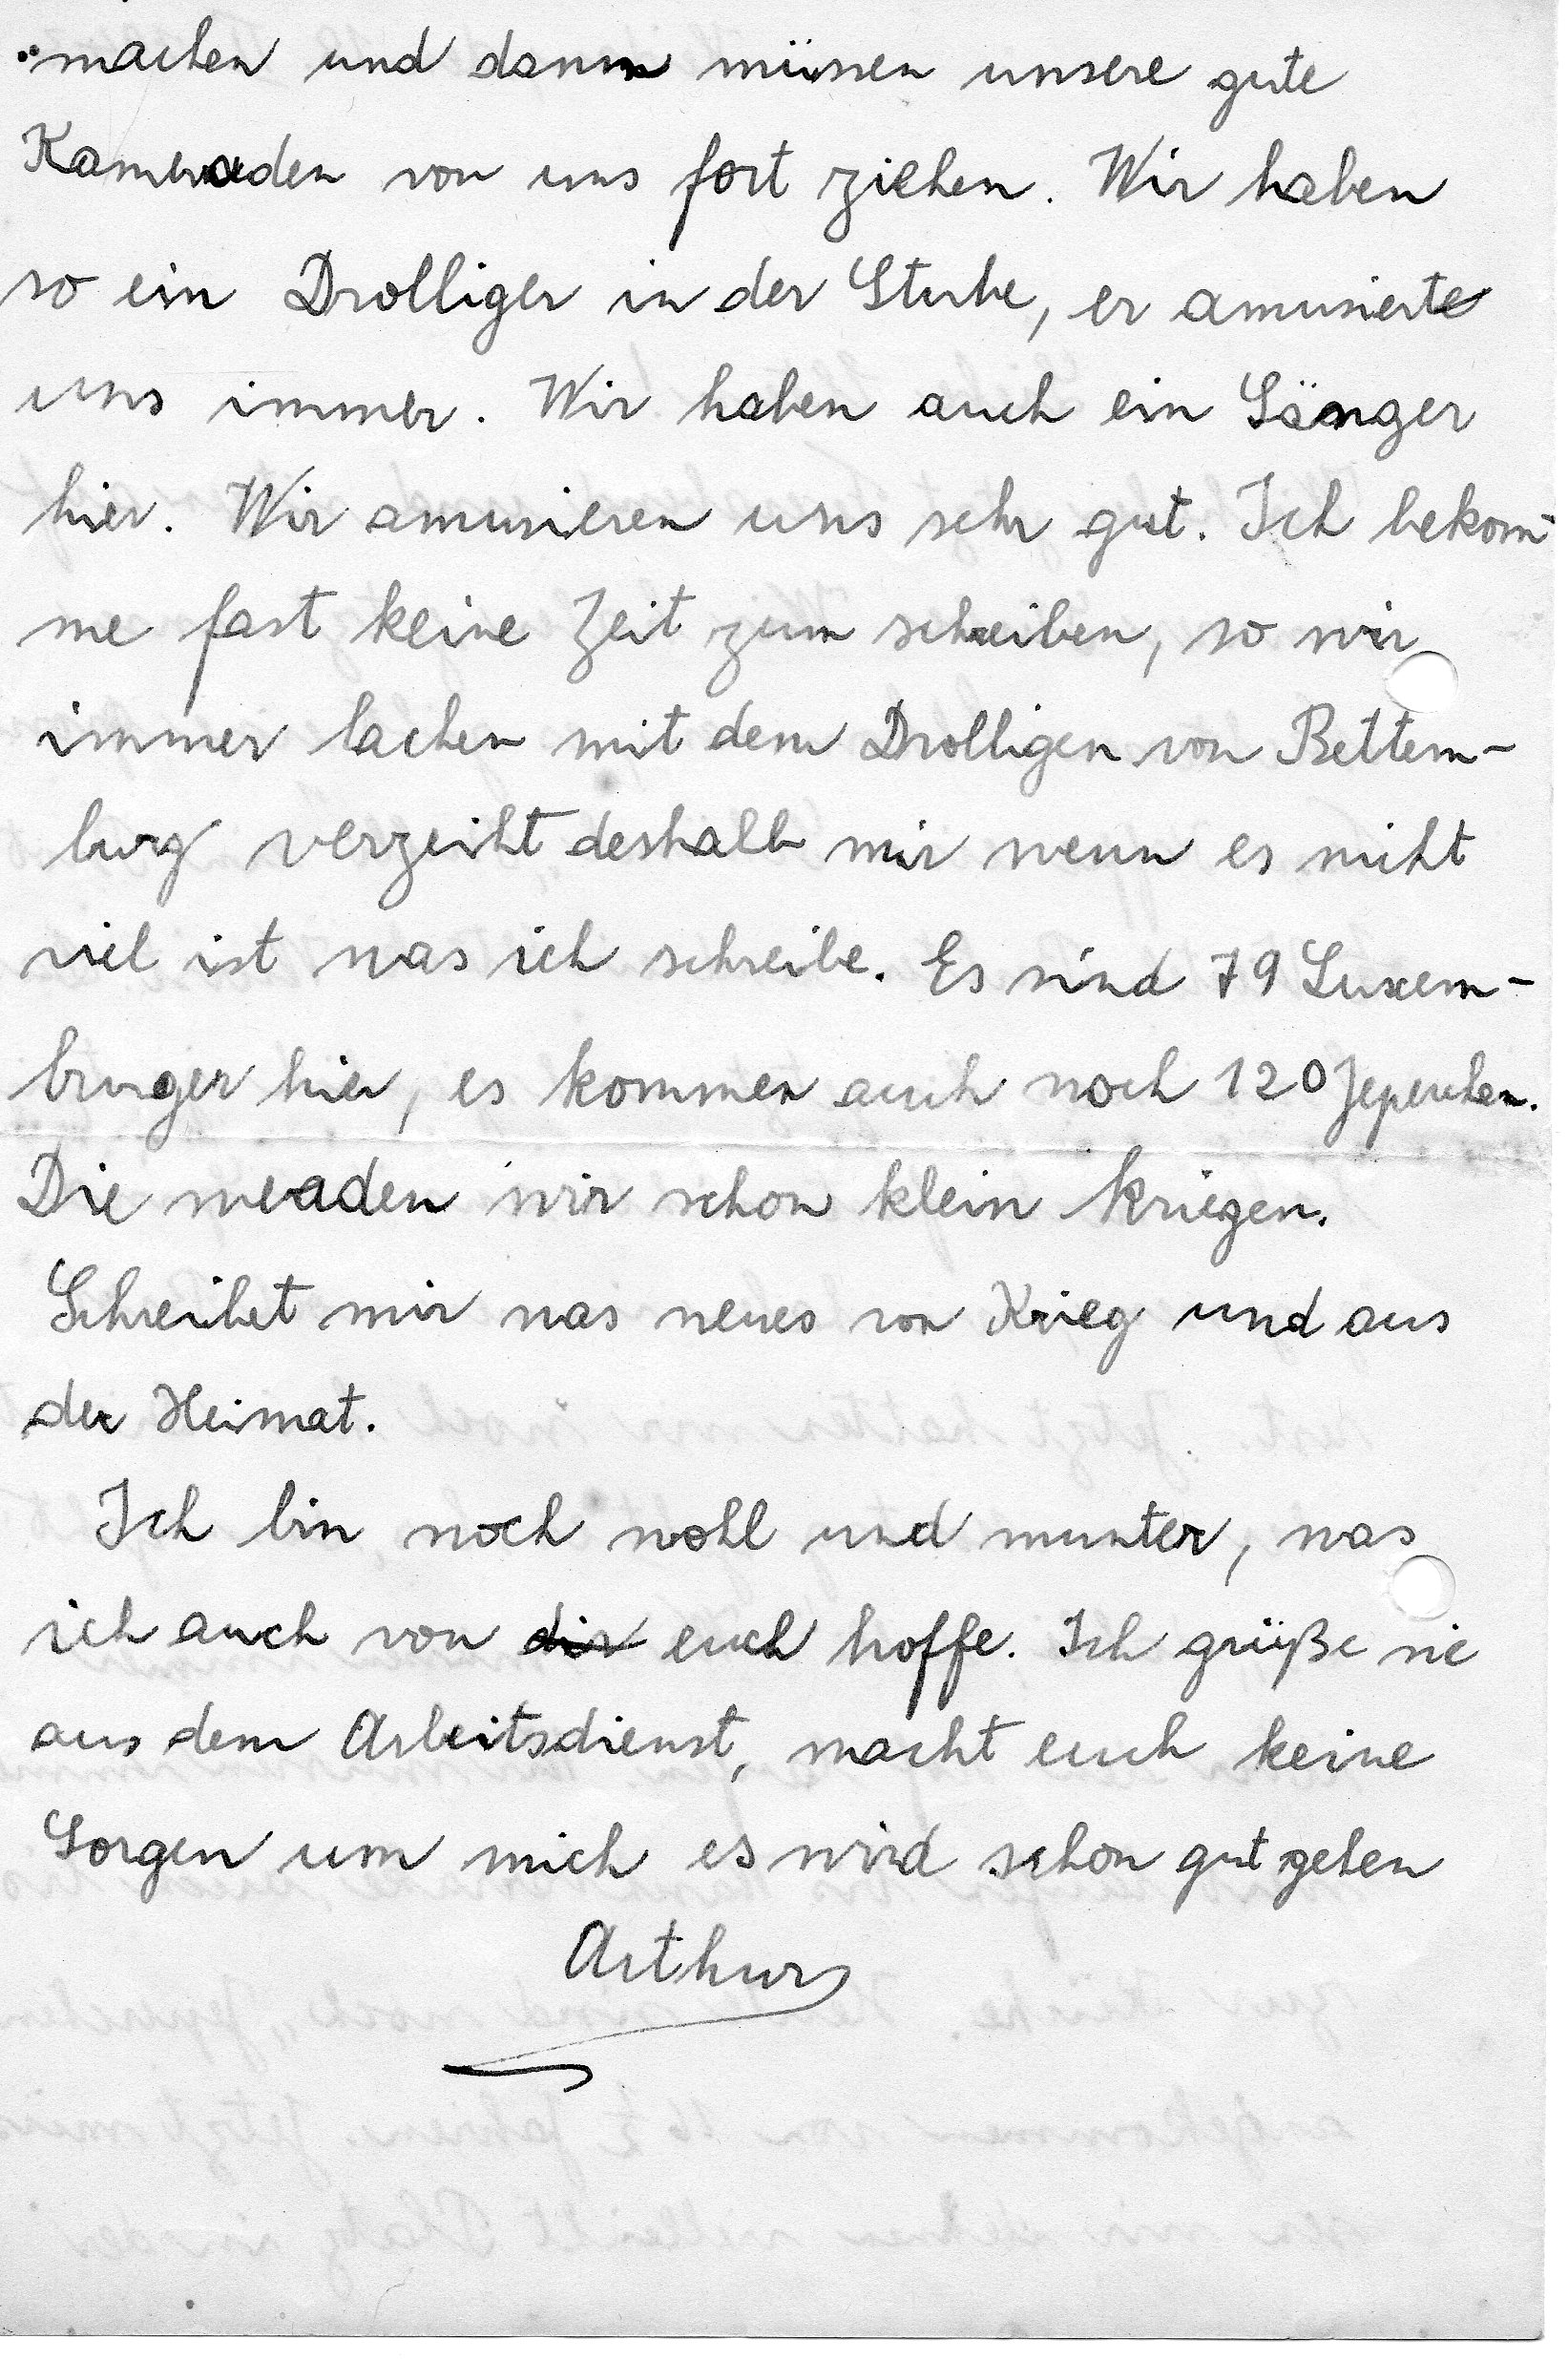 machen und dann müssen unsere gute
Kameraden von uns fort ziehen. Wir haben
so ein Drolliger in der Stube, er amusierte
uns immer. Wir haben auch ein Sänger
hier. Wir amusieren uns sehr gut. Ich bekom-
me fast keine Zeit zum schreiben, so wir
immer lachen mit dem Drolligen von Bettem-
burg verzeiht deshalb mir wenn es nicht
viel ist was ich schreibe. Es sind 79 Luxem-
burger hier, es kommen auch noch 120 Jepeuchen.
Die weaden wir schon klein kriegen.
Schreibet mir was neues von Krieg und aus
der Heimat.
Ich bin noch wohl und munter, was
ich auch von dir euch hoffe. Ich grüße sie
aus dem Arbeitsdienst, macht euch keine
Sorgen um mich es wird schon gut gehen
Arthur